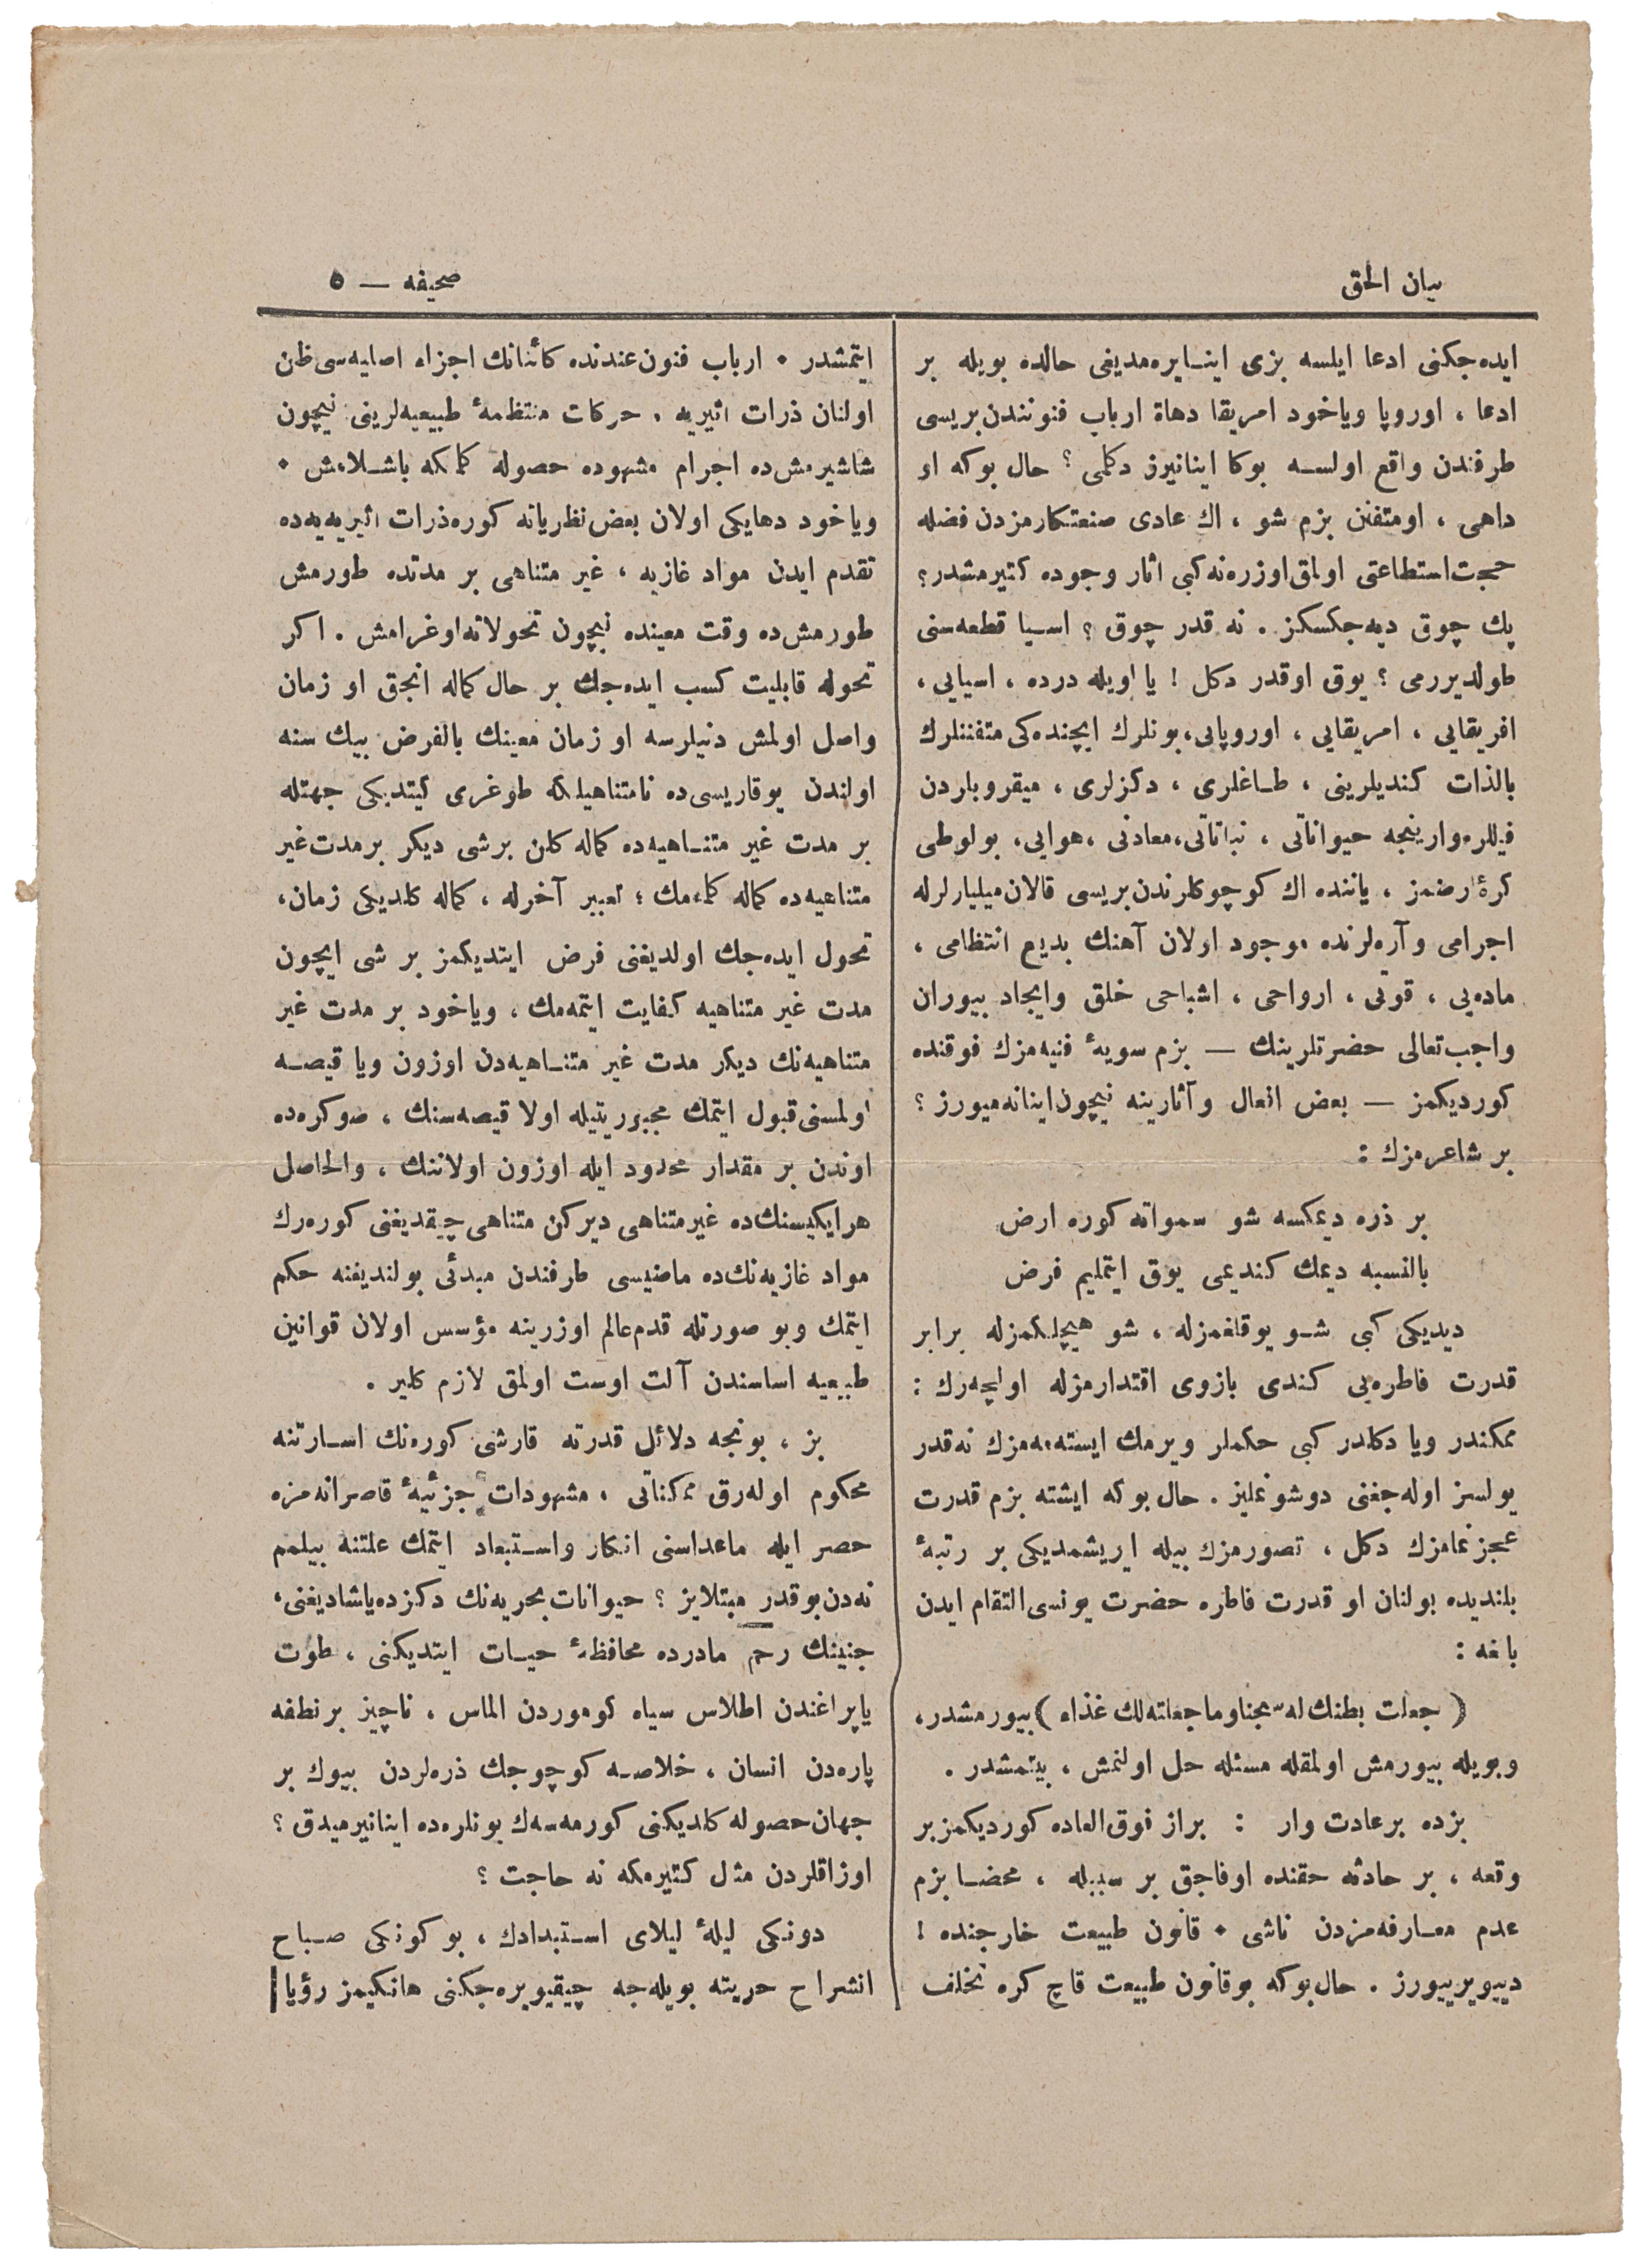 بيان الحق
صحيفه — ٥
ايده‌جكنى ادعا ايلسه بزى اينــايره‌مديغى حالده بويله بر
ادعا ، اوروپا وياخود امريقا دهاة ارباب فنوندن بريسى
طرفندن واقع اولســه بوكا اينانيرز دكلمى ؟ حال بوكه او
داهى ، اومتفنن بزم شو ، اك عادى صنعتكارمزدن فضله
حجت استطاعتى اولمق اوزره نه كبى اثار وجوده كتيرمشدر؟
پك چوق ديه‌جكسكز . نه قدر چوق ؟ اســيا قطعه‌سنى
طولديررمى ؟ يوق اوقدر دكل ! يا اويله درده ، اسيايى ،
افريقايى ، امريقايى ، اوروپايى، بونلرك ايچنده‌كى متفننلرك
بالذات كنديلرينى ، طــاغلرى ، دكزلرى ، ميقروبلردن
فيللره وارينجه حيواناتى ، نباتاتى، معادنى ، هوايى، بولوطى
كرۀ ارضمز ، ياننده اك كوچوكلرندن بريسى قالان ميليارلرله
اجرامى و آره‌لرنده موجود اولان آهنك بديع انتظامى ،
ماده‌يى ، قوتى ، ارواحى ، اشباحى خلق وايجاد بيوران
واجب تعالى حضرتلرينك — بزم سويۀ فنيه‌مزك فوقنده
كورديكمز — بعض افعال و آثارينه نيچون اينانه‌ميورز ؟
بر شاعرمزك :
بر ذره ديمكسه شو سمواته كوره ارض
بالنسبه ديمك كنديمى يوق ايتمليم فرض
ديديكى كبى شــو يوقلغمزله ، شو هيچلكمزله برابر
قدرت فاطره‌يى كندى بازوى اقتدارمزله اولچه‌رك :
ممكندر ويا دكلدر كبى حكملر ويرمك ايسته‌مه‌مزك نه‌قدر
يولسز اوله‌جغنى دوشونمليز . حال بوكه ايشته بزم قدرت
عجز نمامزك دكل ، تصورمزك بيله اريشمديكى بر رتبۀ
بلنديده بولنان او قدرت فاطره حضرت يونسى التقام ايدن
باغه :
( جعلت بطنك له سجنا وما جعلته لك غذاء ) بيورمشدر،
وبويله بيورمش اولمقله مسئله حل اولنمش ، بيتمشدر .
بزده بر عادت وار : براز فوق العاده كورديكمز بر
وقعه ، بر حادثه حقنده اوفاجق بر سببله ، محضــا بزم
عدم معــارفه‌مزدن ناشى ٠ قانون طبيعت خارجنده !
دييويرييورز . حال بوكه بوقانون طبيعت قاچ كره تخلف
ايتمشدر ٠ ارباب فنون عندنده كائناتك اجزاء اصليه‌سى ظن
اولنان ذرات اثيريه ، حركات منتظمۀ طبيعيه‌لرينى نيچون
شاشيرمش‌ده اجرام مشهوده حصوله كلمكه باشــلامش ٠
وياخود دهايكى اولان بعض نظرياته كوره ذرات اثيريه‌يه‌ده
تقدم ايدن مواد غازيه ، غير متناهى بر مدتده طورمش
طورمش‌ده وقت معينده نيچون تحولاته اوغرامش . اكر
تحوله قابليت كسب ايده‌جك بر حال كماله انجق او زمان
واصل اولمش دنيلرسه او زمان معينك بالفرض بيك سنه
اولندن يوقاريسى‌ده نامتناهيلكه طوغرى كيتديكى جهتله
بر مدت غير متنــاهيه‌ده كماله كلن برشى ديكر بر مدت غير
متناهيه‌ده كماله كلمه‌مك ؛ تعبير آخرله ، كماله كلديكى زمان،
تحول ايده‌جك اولديغنى فرض ايتديكمز بر شى ايچون
مدت غير متناهيه كفايت ايتمه‌مك ، وياخود بر مدت غير
متناهيه‌نك ديكر مدت غير متنــاهيه‌دن اوزون ويا قيصــه
اولمسنى قبول ايتمك مجبوريتيله اولا قيصه‌سنك ، صوكره‌ده
اوندن بر مقدار محدود ايله اوزون اولاننك ، والحاصل
هرايكيسنك‌ده غير متناهى ديركن متناهى چيقديغنى كوره‌رك
مواد غازيه‌نك‌ده ماضيسى طرفندن مبدئى بولنديغنه حكم
ايتمك وبو صورتله قدم عالم اوزرينه مؤسس اولان قوانين
طبيعيه اساسندن آلت اوست اولمق لازم كلير .
بز ، بونجه دلائل قدرته قارشى كوره‌نك اســارتنه
محكوم اوله‌رق ممكناتى ، مشهودات جزئيۀ قاصرانه‌مزه
حصر ايله ماعداسنى انكار واســتبعاد ايتمك علتنه بيلمم
نه‌دن بوقدر مبتلايز ؟ حيوانات بحريه‌نك دكزده ياشاديغنى،
جنينك رحم مادرده محافظۀ حيــات ايتديكنى ، طوت
ياپراغندن اطلاس سياه كوموردن الماس ، ناچيز بر نطفه
پاره‌دن انسان ، خلاصــه كوچوجك ذره‌لردن بيوك بر
جهان حصوله كلديكنى كورمه‌سه‌ك بونلره‌ده اينانيرميدق ؟
اوزاقلردن مثل كتيرمكه نه حاجت ؟
دونكى ليلۀ ليلاى اســتبدادك ، بو كونكى صــباح
انشراح حريته بويله‌جه چيقيويره‌جكنى هانكيمز رؤيا